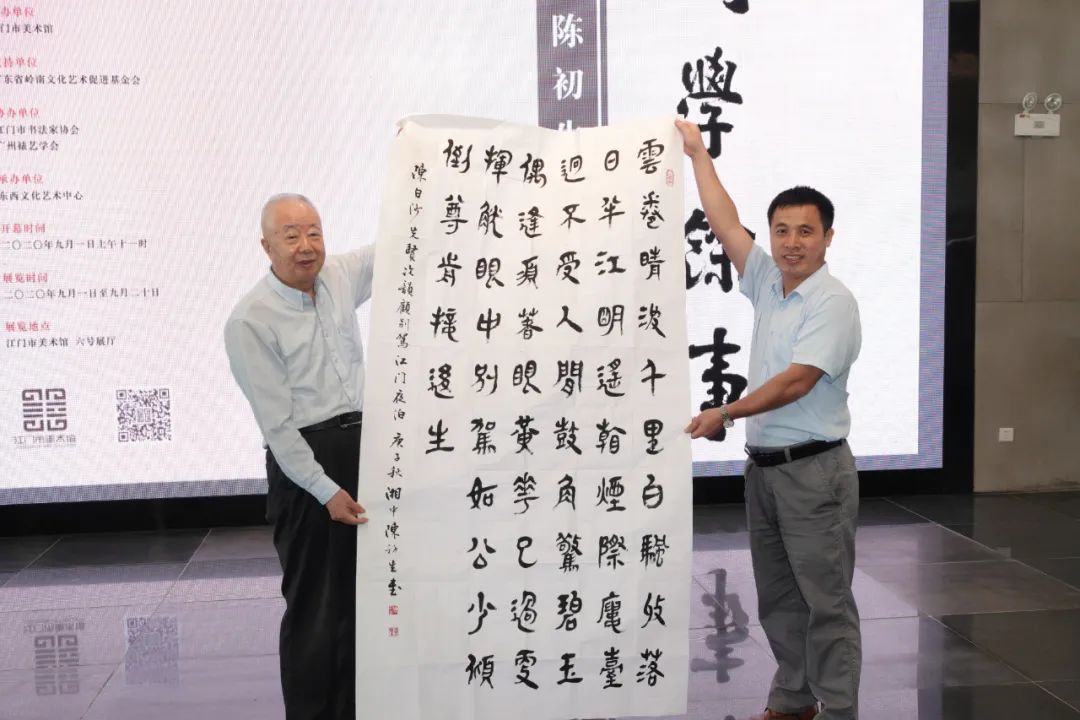 办单位
门市美术馆
持单位
东省岭南文化艺术促进基金会
办单位
江门市书法家协会
广州裱艺学会
承办单位
东西文化艺术中心
开幕时间
二〇二〇年九月一日上午十一时
展览时间
二〇二〇年九月一日至九月二十日
展览地点
江门市美术馆 六号展厅
江门市美术馆
陈初生
學餘事
雲卷晴波千里白颿收落
日半江明遙煙際臺
迥不受人間鼓角驚碧玉
偶逢須著眼黃花已過更
揮觥眼中別駕如公少傾
倒尊肯接後生
陳白沙先賢次韻顧別駕江门夜泊 庚子秋 湘中陳初生書